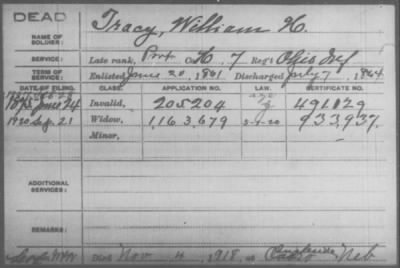 DEAD
Tracy, William H.
NAME OF SOLDIER:
SERVICE: Late rank, Prvt Co. H, 7 Reg't Ohio Inf
TERM OF SERVICE: Enlisted June 20, 1861 Discharged July 7, 1864
DATE OF FILING. CLASS. APPLICATION NO. LAW. CERTIFICATE NO.
June 24 Invalid, 205204 491029
1920 Sep. 21 Widow, 1,163,679 5-1-20 933,937
Minor,
ADDITIONAL SERVICES:
REMARKS:
Died Nov 4, 1918, at Neb